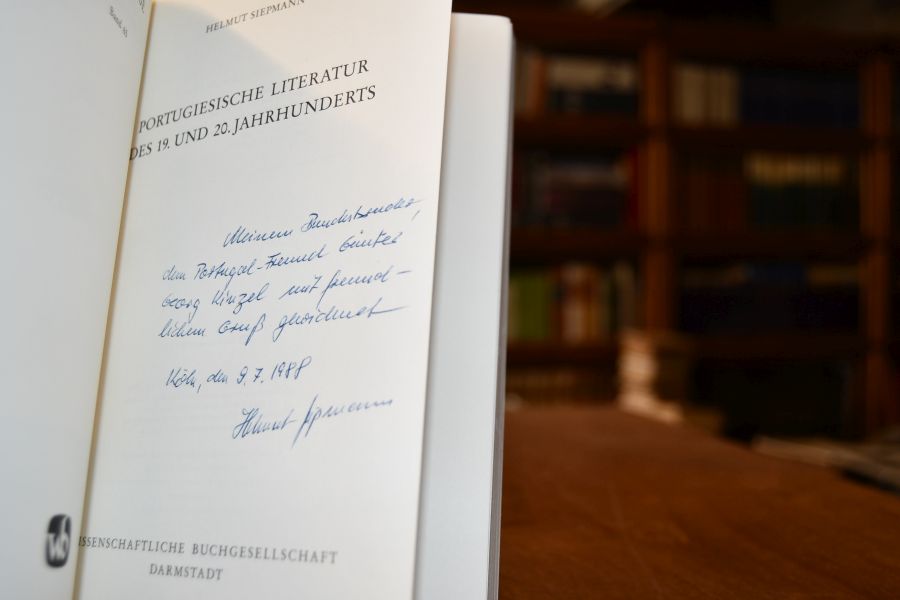 Band 41
HELMUT SIEPMANN
PORTUGIESISCHE LITERATUR
DES 19. UND 20. JAHRHUNDERTS
Meinem Bundesbruder,
dem Portugal-Freund Günter
Georg Kinzel mit freund-
lichem Gruß gewidmet
Köln, den 9.7.1988
Helmut Siepmann
WISSENSCHAFTLICHE BUCHGESELLSCHAFT
DARMSTADT